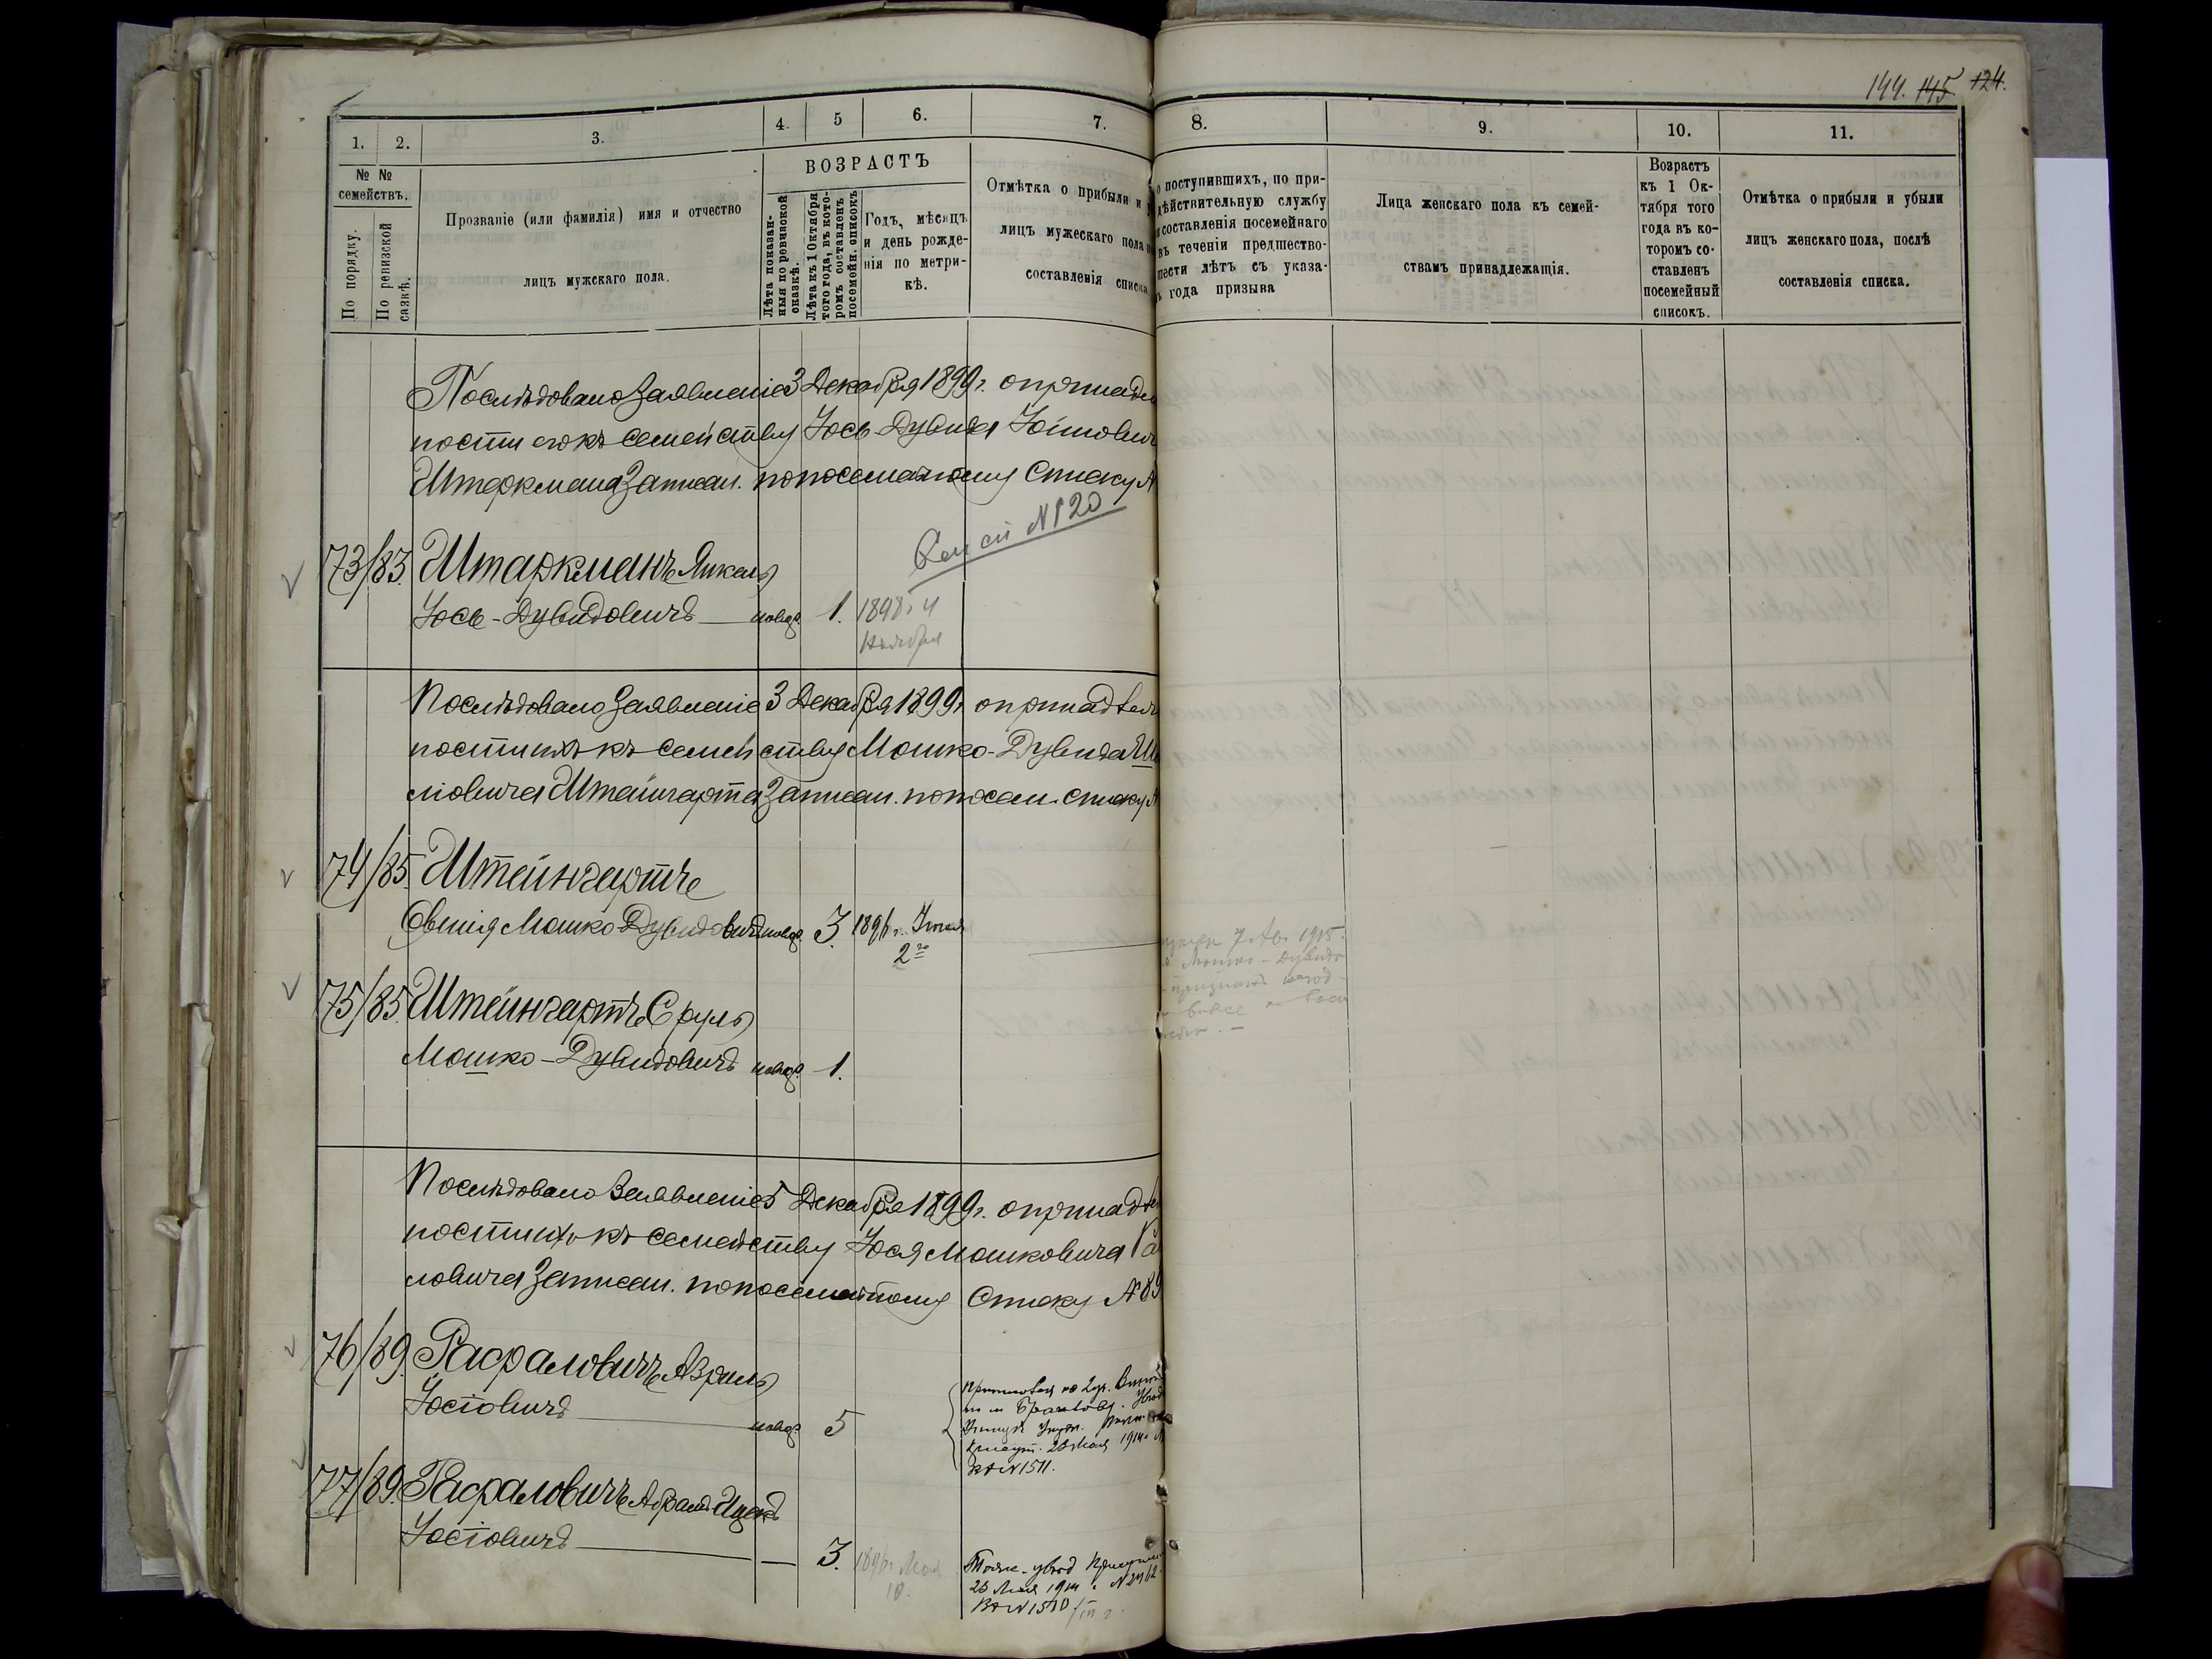 144. 145. 124.
1. 2. 3. 4. 5 6. 7. 8. 9. 10. 11.
№ №
семействъ.
По порядку.
По ревизской
сказкѣ.
Прозваніе (или фамилія) имя и отчество
лицъ мужскаго пола.
ВОЗРАСТЪ
Лѣта показан-
ныя по ревизской
сказкѣ.
Лѣта къ 1 Октября
того года, въ кото-
ромъ составленъ
посемейн. списокъ
Годъ, мѣсяцъ
и день рожде-
нія по метри-
кѣ.
Отмѣтка о прибыли и
лицъ мужескаго пола
составленія списка
о поступившихъ, по при-
дѣйствительную службу
составленія посемейнаго
въ теченіи предшество-
шести лѣтъ съ указа-
года призыва
Лица женскаго пола къ семей-
ствамъ принадлежащія.
Возрастъ
къ 1 Ок-
тября того
года въ ко-
торомъ со-
ставленъ
посемейный
списокъ.
Отмѣтка о прибыли и убыли
лицъ женскаго пола, послѣ
составленія списка.
Послѣдовало Заявленіе 3 Декабря 1899 г. о принадле
ности его къ семейству Іось-Дувида
Штаркмана Записан. по посемейному Списку
№ 120
73/83. Штаркманъ Янкель
Іось-Дувидовичъ новор. 1. 1898 г. 4
Ноября
Послѣдовало Заявленіе 3 Декабря 1899 г. о принадле
ности ихъ къ семейству Мошко-Дувида Ш
міовича Штейнгарта Записан. по посем. списку
74/85. Штейнгартъ
Овшія Мошко-Дувидовичъ новор. 3. 1896 г. Іюня
2го
7 1915.
Мошко-Дувидо
75/85. Штейнгартъ Сруль
Мошко-Дувидовичъ новор. 1.
Послѣдовало Заявленіе 5 Декабря 1899 г. о принадле
ности ихъ къ семейству Іося Мошковича Ра
ловича Записан. по посемейному Списку № 89
76/89. Рафаловичъ Азриль
Іосіовичъ новор. 5
23 Мая 1914 г.
№ 1511.
77/89. Рафаловичъ Абрамъ Ицекъ
Іосіовичъ — 3. 1896 г. Мая
18.
23 Мая 1914 г. № 2762
№ 1510